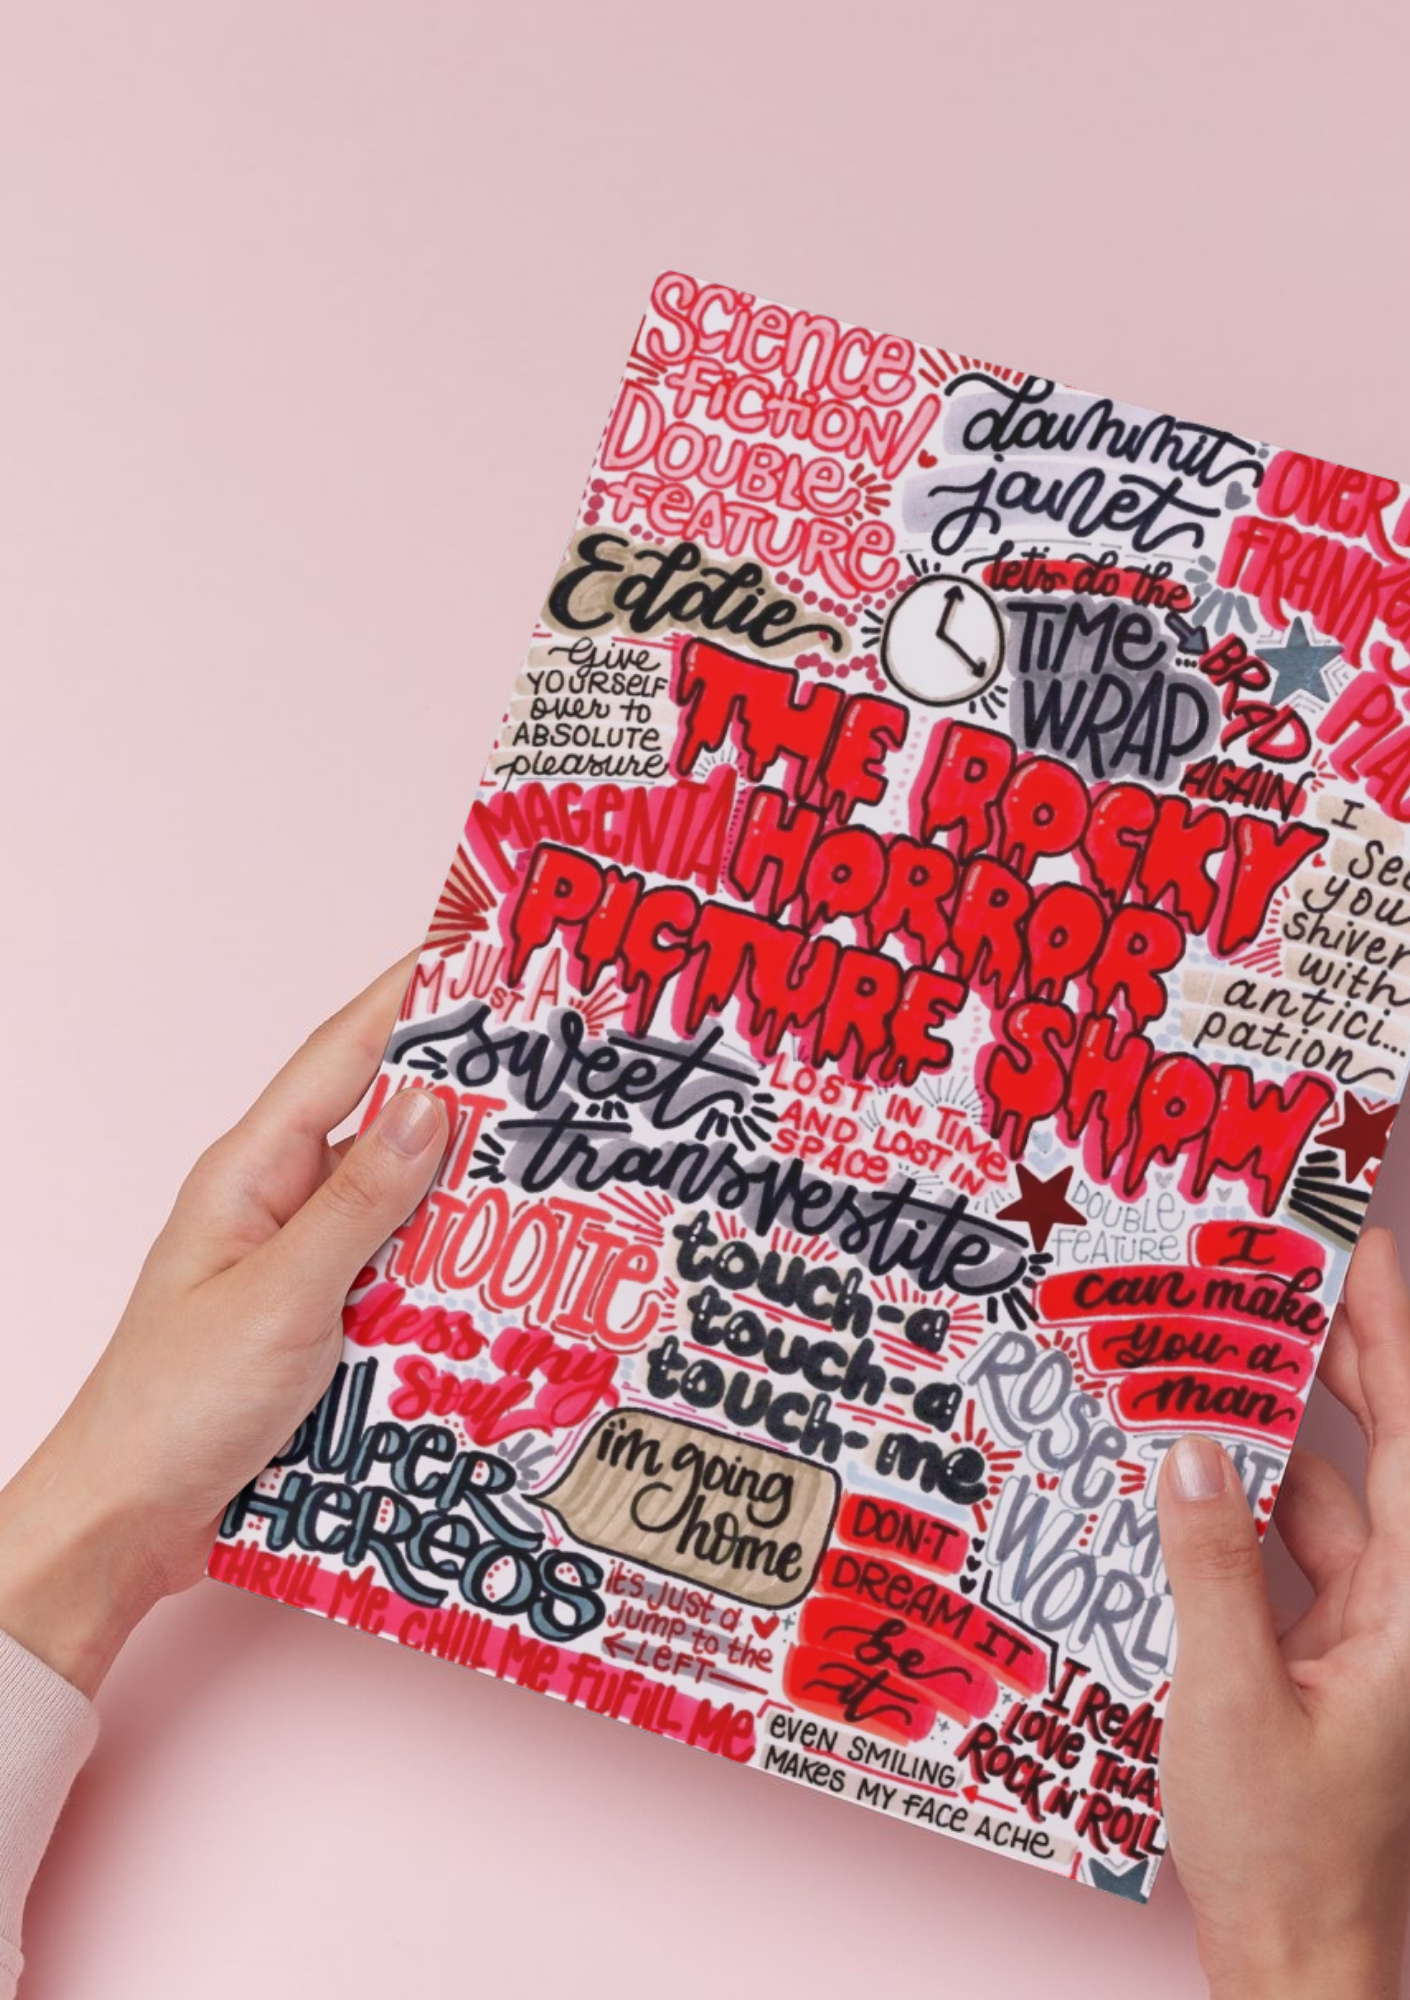 Science
Fiction/
Double
Feature
dammit
janet
OVER
FRANK
Eddie
let's do the
TIME
WRAP
AGAIN
BRAD
Give
YOURSELF
over to
ABSOLUTE
pleasure
MAGENTA
THE ROCKY
HORROR
PICTURE SHOW
I
see
you
shiver
with
antici...
pation
I'M JUST A
sweet
transvestite
LOST IN TIME
AND LOST IN
SPACE
DOUBLE
FEATURE
HOT
PATOOTIE
bless my
soul
touch-a
touch-a
touch-me
I
can make
you a
man
ROSE TINT
MY
WORLD
SUPER
HEREOS
i'm going
home
DON'T
DREAM IT
be
it
it's just a
jump to the
LEFT
THRILL Me CHILL Me FUFILL Me
EVEN SMILING
MAKES MY FACE ACHE
I REAL
LOVE THA
ROCK 'N' ROLL